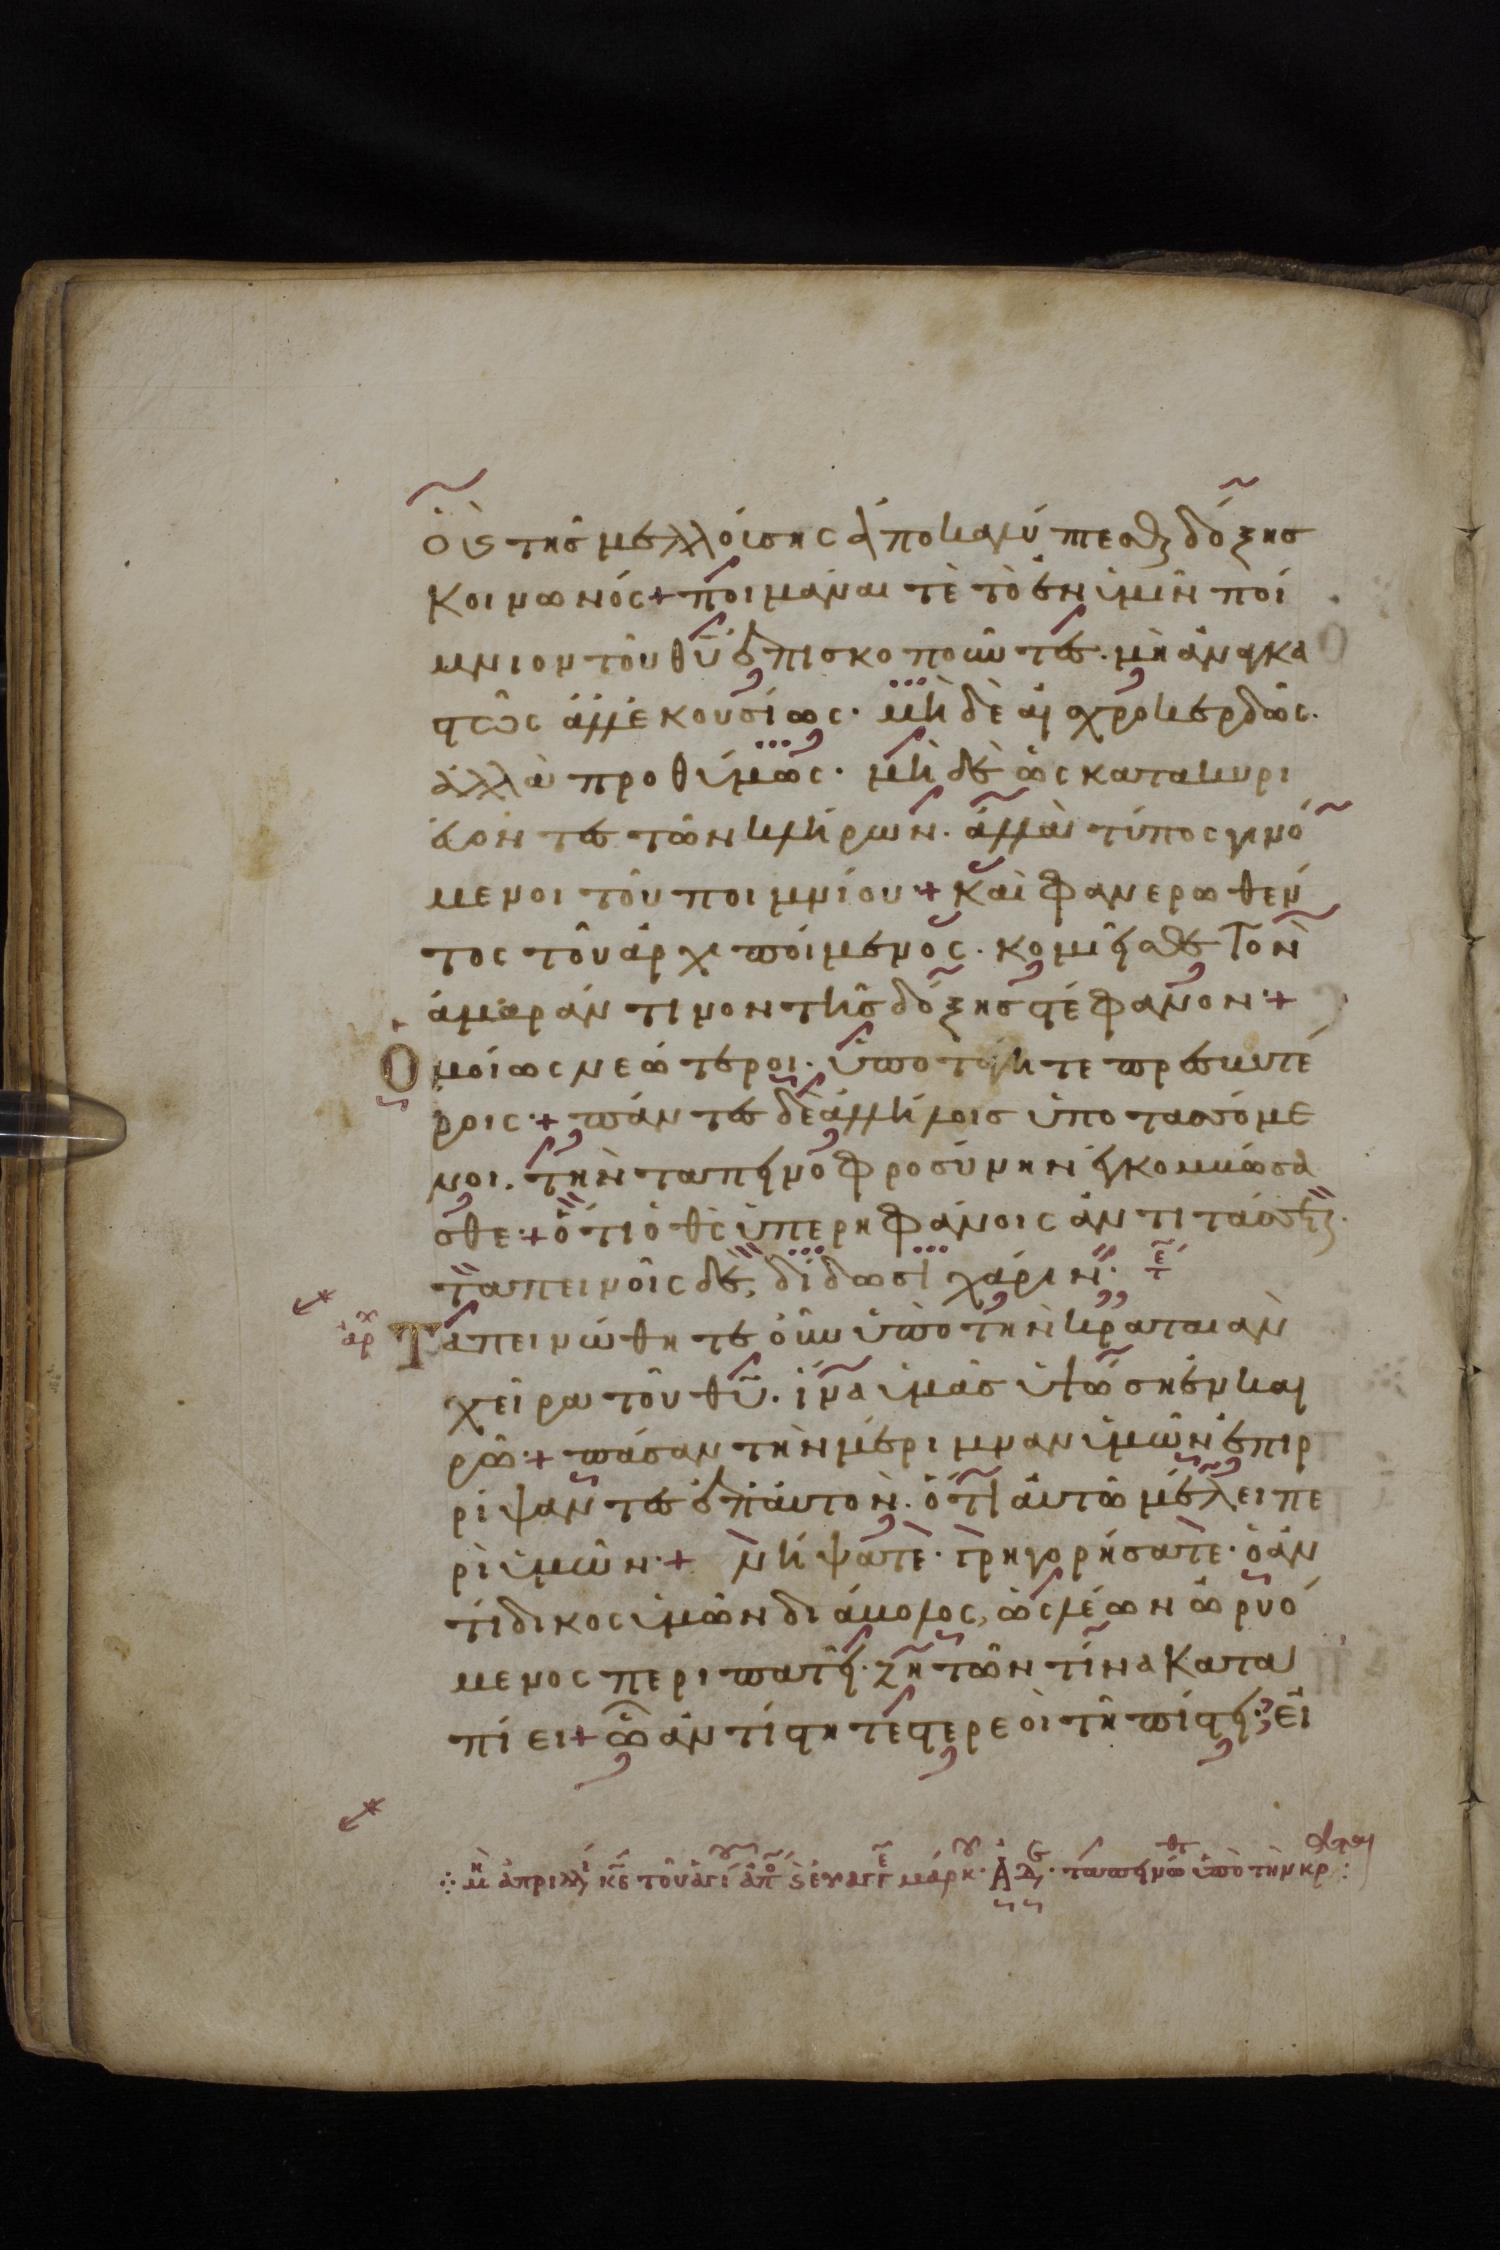 ὁ ϗ τῆς μελλούσης ἀποκαλύπτεσθαι δόξης
κοινωνός + ποιμάναται τὲ τὸ ἐν ὑμῖν ποί
μνιον τοῦ θῦ ἐπισκοποῦντες · μὴ ἀναγκα
στῶς ἀλλ' ἑκουσίως · μὴ δὲ αἰσχροκερδῶς ·
ἀλλὰ προθύμως · μὴ δὲ ὡς κατακυρι
εύοντες τῶν κλήρων · ἀλλὰ τύποι γινό
μενοι τοῦ ποιμνίου + καὶ φανερωθέν
τος τοῦ ἀρχιποίμενος · κομιεῖσθε τὸν
ἀμαράντινον τῆς δόξης στέφανον +
Ὁμοίως νεώτεροι · ὑποτάγητε πρεσβυτέ
ροις + πάντες δὲ ἀλλήλοις ὑποτασσόμε
νοι · τὴν ταπεινοφροσύνην ἐγκομβώσα
σθε + ὅτι ὁ θς ὑπερηφάνοις ἀντιτάσσεται ·
ταπεινοῖς δὲ, δίδωσι χάριν · τε
αρ Ταπεινώθητε οὖν ὑπὸ τὴν κραταιὰν
χεῖρα τοῦ θῦ · ἵνα ὑμᾶς ὑψώση ἐν και
ρῶ + πᾶσαν τὴν μέριμναν ὑμῶν ἐπιρ
ρίψαντες ἐπ' αὐτὸν · ὅτι αὐτῶ μέλει πε
ρὶ ὑμῶν + νήψατε · γρηγορήσατε · ὁ ἀν
τίδικος ὑμῶν διάβολος, ὡς λέων ὠρυό
μενος περιπατεῖ · ζητῶν τίνα κατα
πίει + ὧ ἀντίστητε στερεοὶ τῆ πίστει · εἰ
μη ἀπριλλι κε τοῦ ἁγί ἀπο ϗ εὐαγγε μάρκ · ταπεινώθτ ὑπὸ τὴν κρ :